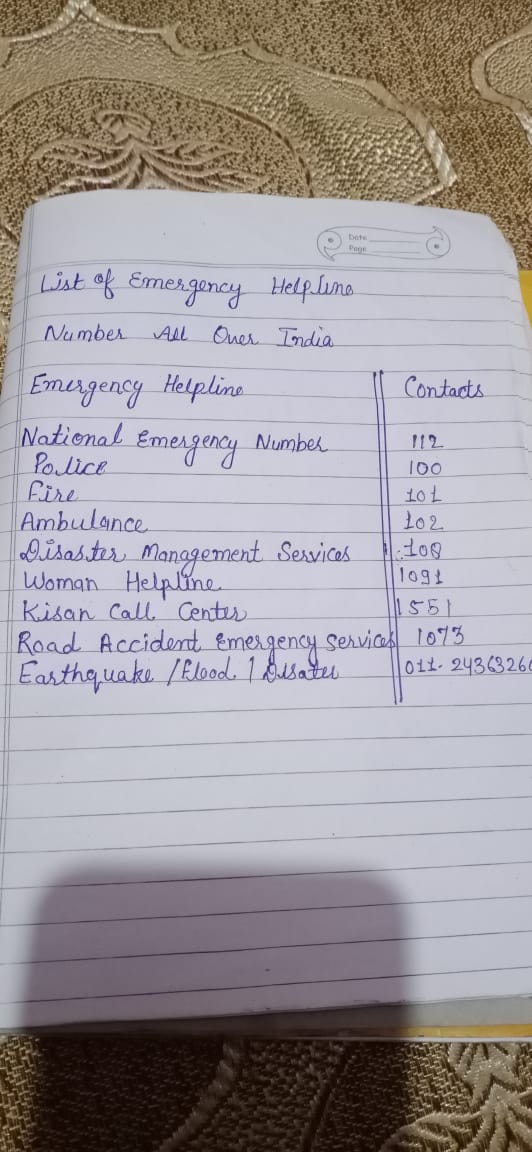 Date
Page
List of Emergency Helpline
Number All Over India
Emergency Helpline Contacts
National Emergency Number 112
Police 100
Fire 101
Ambulance 102
Disaster Management Services 108
Woman Helpline 1091
Kisan Call Center 1551
Road Accident Emergency Services 1073
Earthquake / Flood / Disater 011-2436326